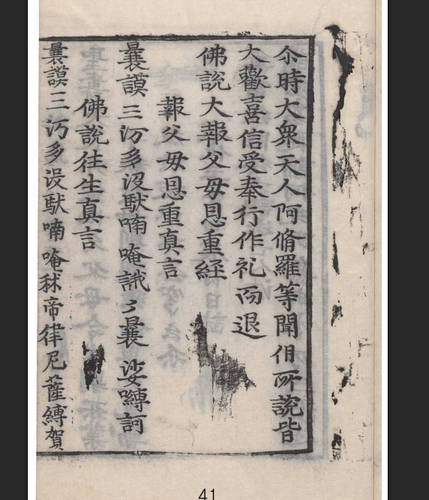 尒時大衆天人阿脩羅等聞佀所說皆
大歡喜信受奉行作礼而退
佛說大報父母恩重經
報父母恩重真言
曩謨三沕多沒馱喃唵誐〻曩娑嚩訶
佛說往生真言
曩謨三沕多沒馱喃唵秫帝律尼薩縛賀
41